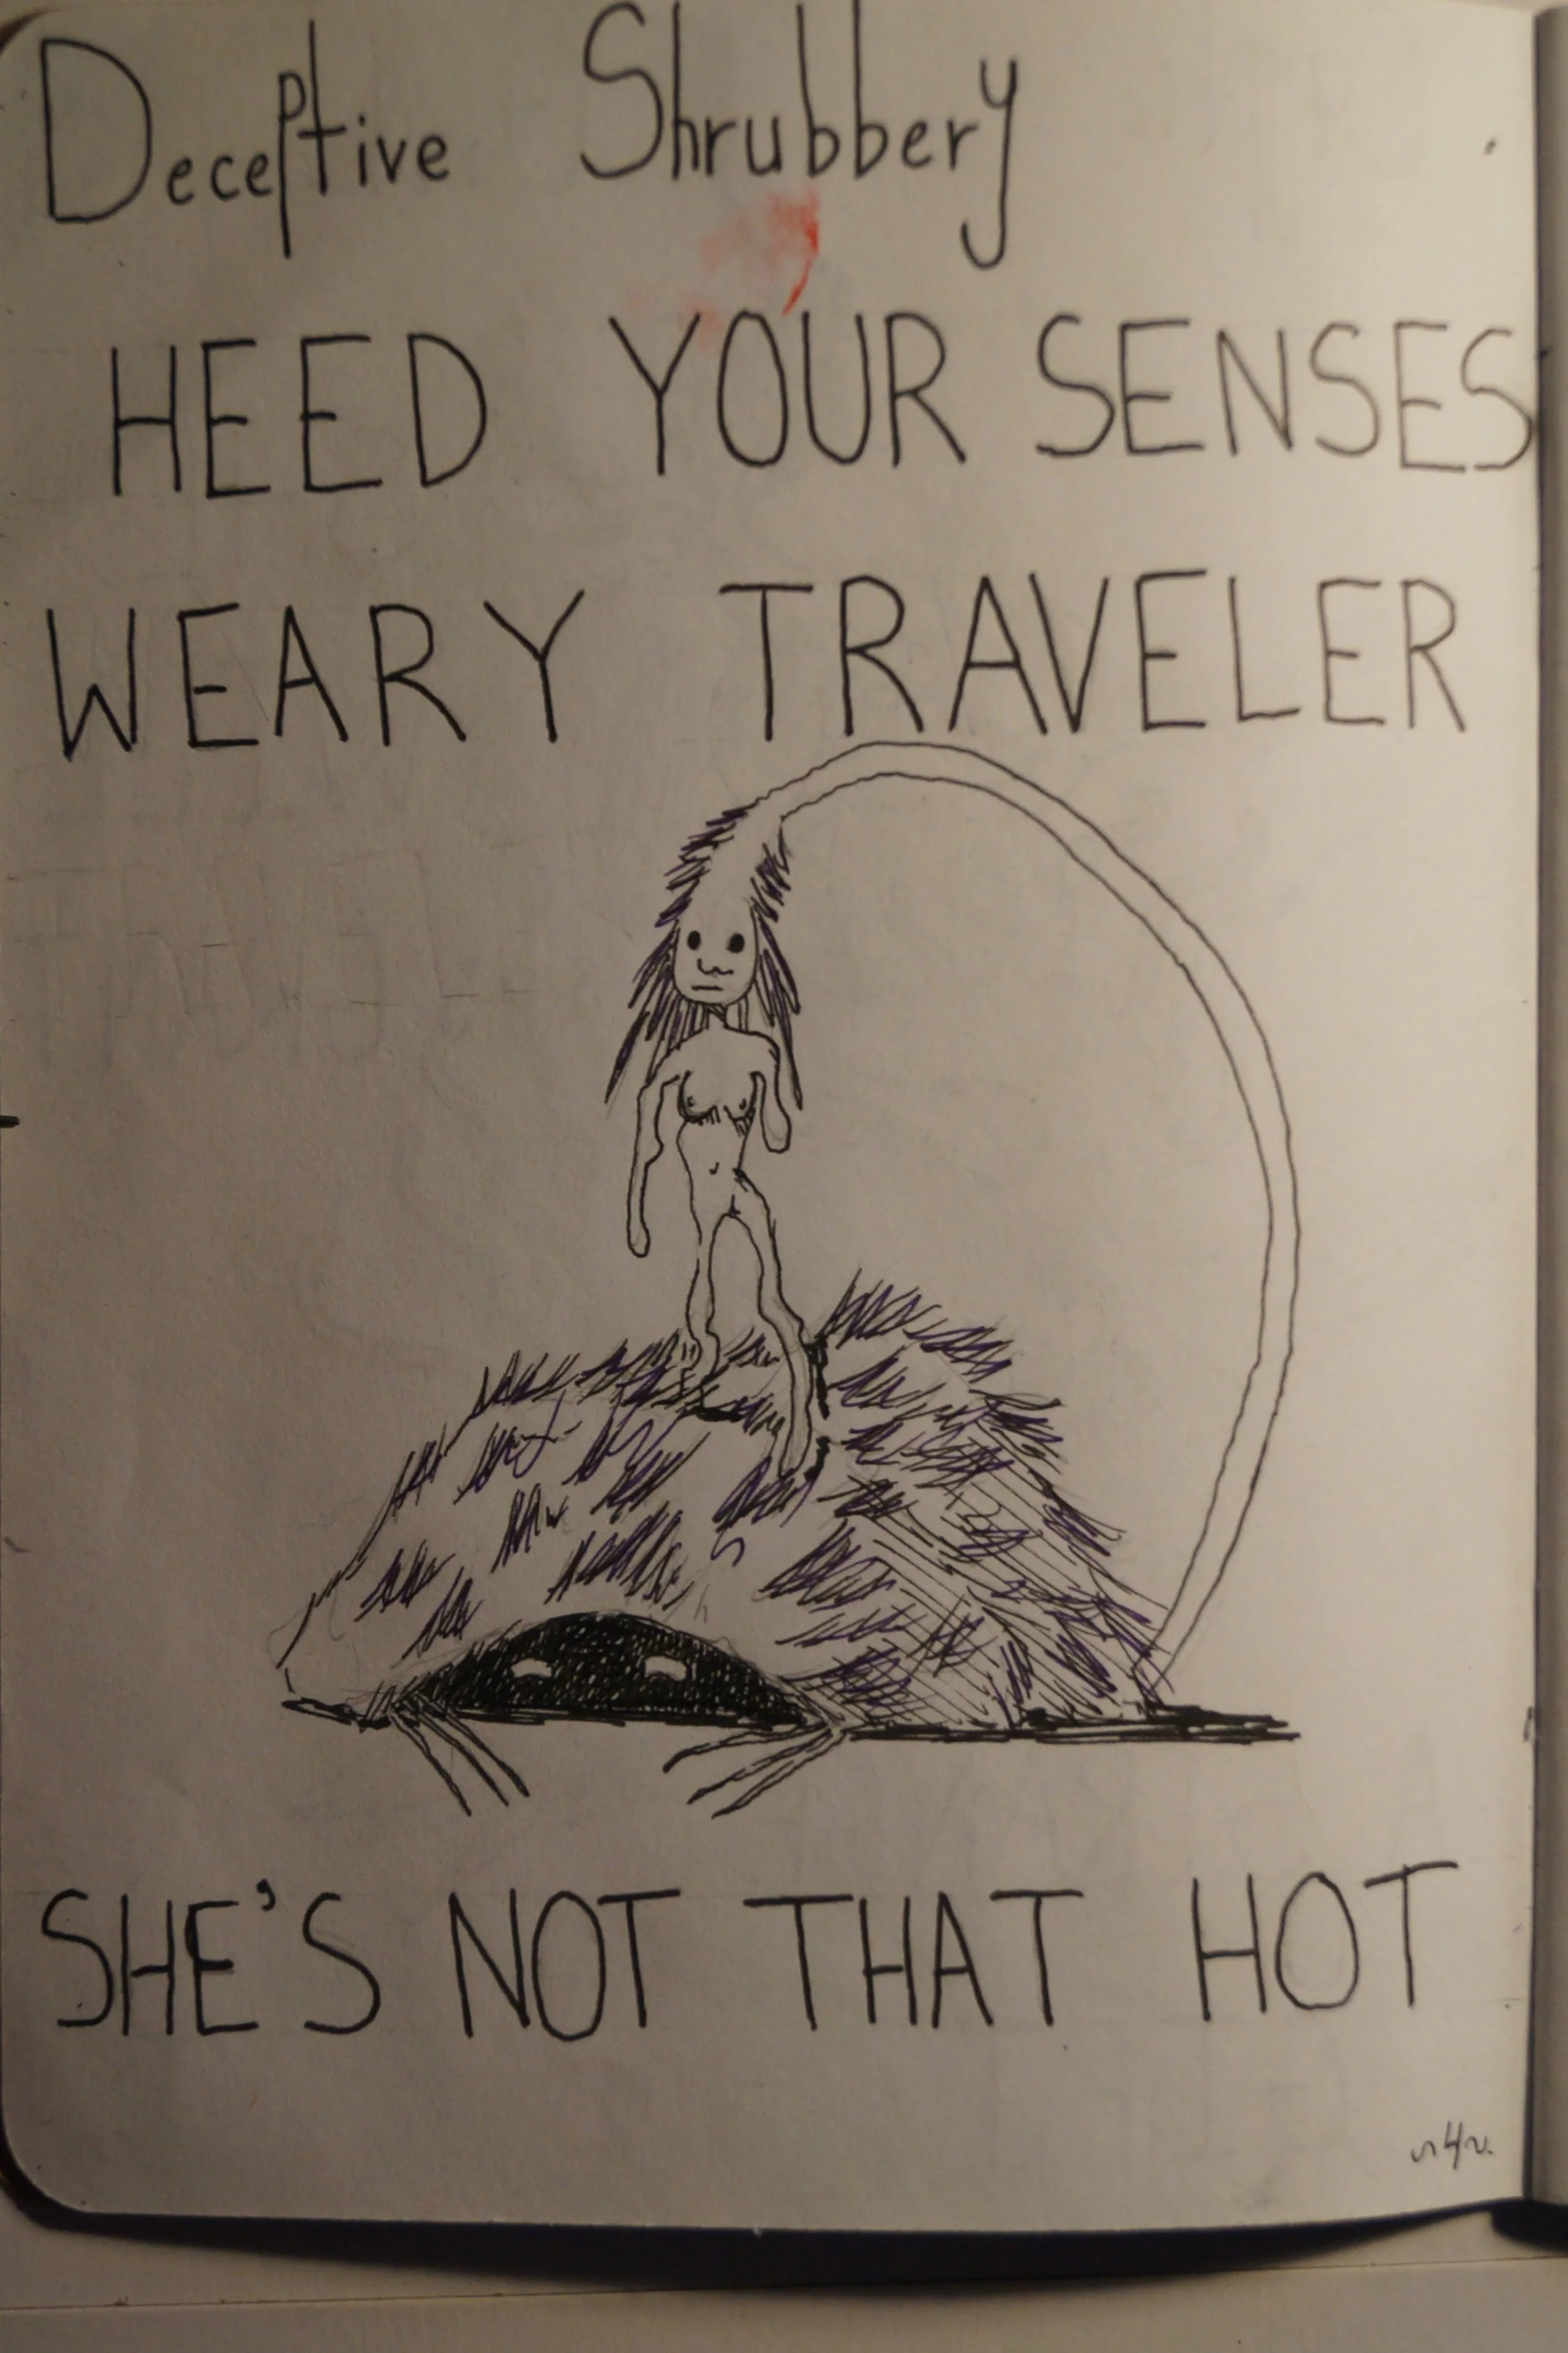 Deceptive Shrubbery
HEED YOUR SENSES
WEARY TRAVELER
SHE'S NOT THAT HOT